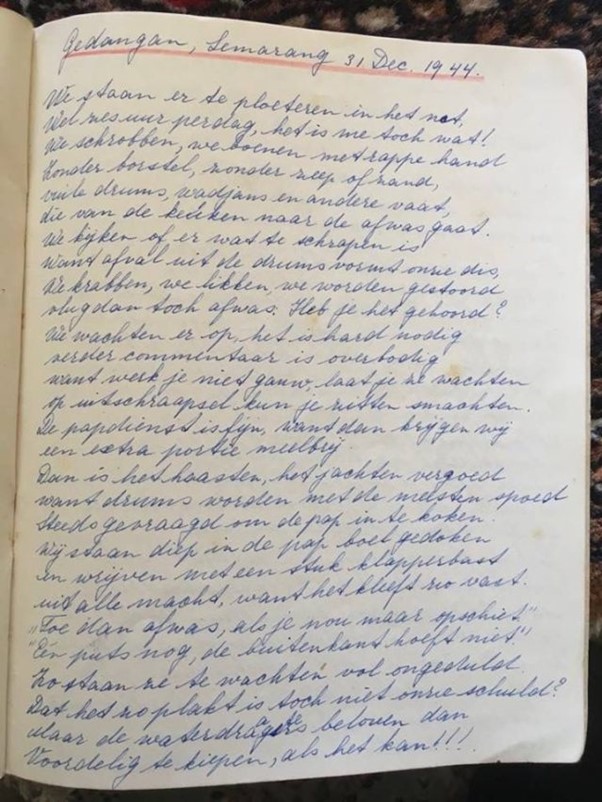 Gedangan, Semarang 31 Dec. 1944.
We staan er te ploeteren in het nat,
Wel zes uur per dag, het is me toch wat!
We schrobben, we boenen met rappe hand
Zonder borstel, zonder zeep of zand,
vuile drums, wadjans en andere vaat,
die van de keuken naar de afwas gaat.
We kijken of er wat te schrapen is
Want afval uit de drums vormt onze dis,
We krabben, we likken, we worden gestoord
vlug dan toch afwas. Heb je het gehoord?
We wachten er op, het is hard nodig
verder commentaar is overbodig
want werk je niet gauw, laat je ze wachten
op uitschraapsel kun je zitten smachten.
De papdienst is fijn, want dan krijgen wij
een extra portie meelbrij
Dan is het haasten, het jachten vergoed
want drums worden met de meesten spoed
steeds gevraagd om de pap in te koken.
Wij staan diep in de pap boel gedoken
en wrijven met een stuk klapperbast
uit alle macht, want het kleeft zo vast.
"Toe dan afwas, als je nou maar opschiet"
"Eén puts nog, de buitenkant hoeft niet!"
Zo staan ze te wachten vol ongeduld.
Dat het zo plakt is toch niet onze schuld?
Maar de waterdraagsters beloven dan
Voordelig te kiepen, als het kan!!!.